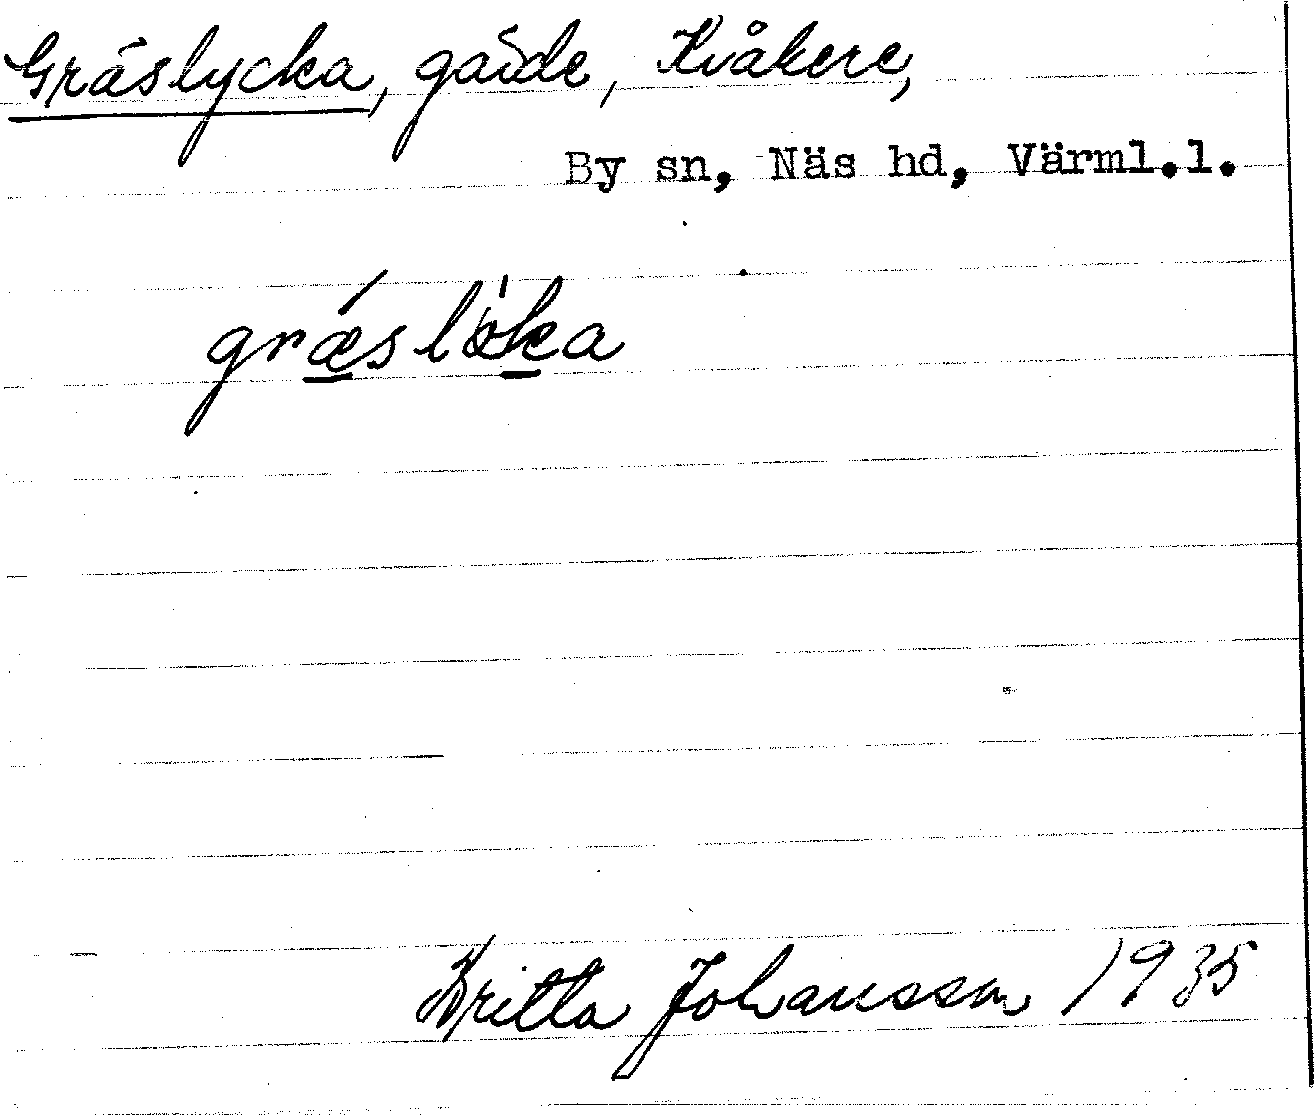 Gräslycka, gärde, Kvåkere,
By sn, Näs hd, Värml.l.
græ´slö̀ka
Britta Johansson 1935